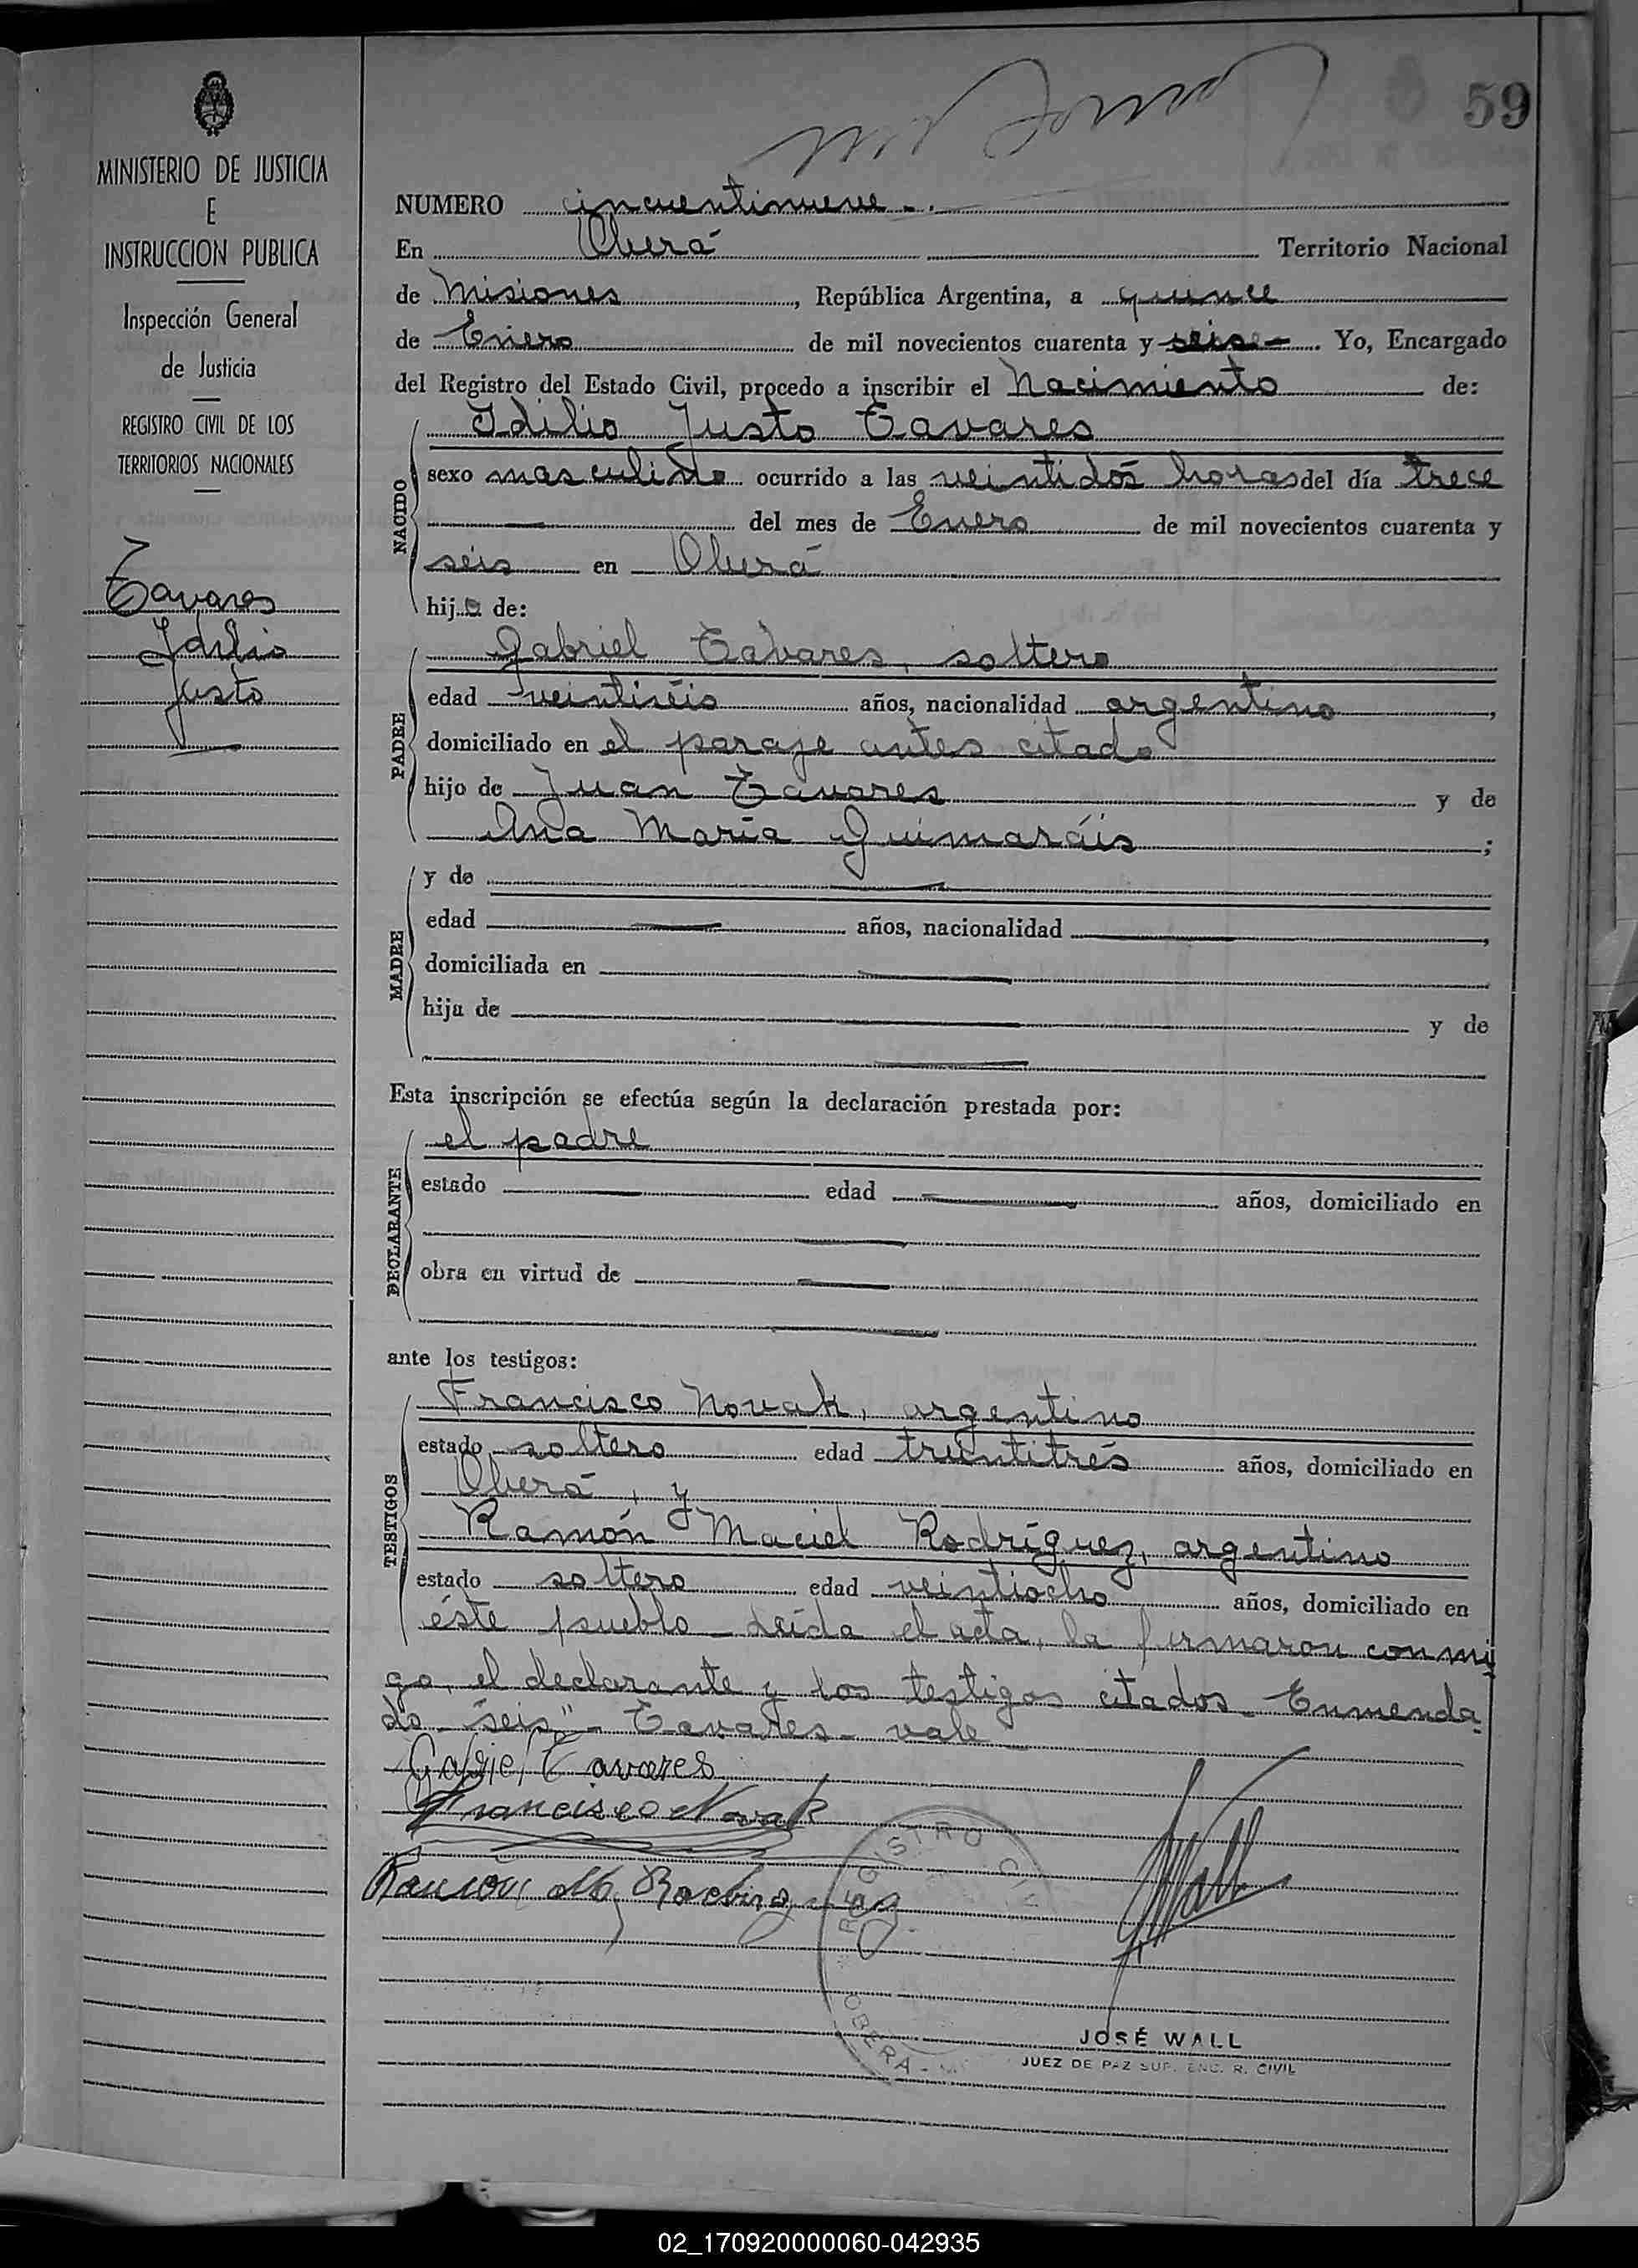 59
MINISTERIO DE JUSTICIA
E
INSTRUCCION PUBLICA
Inspección General
de Justicia
REGISTRO CIVIL DE LOS
TERRITORIOS NACIONALES
Tavares
Idilio
Justo
NUMERO cincuentinueve
En Oberá Territorio Nacional
de Misiones, República Argentina, a quince
de Enero de mil novecientos cuarenta y seis Yo, Encargado
del Registro del Estado Civil, procedo a inscribir el Nacimiento de:
NACIDO
Idilio Justo Tavares
sexo masculino ocurrido a las veintidós horas del día trece
del mes de Enero de mil novecientos cuarenta y
seis en Oberá
hijo de:
PADRE
Gabriel Tavares, soltero
edad veintiséis años, nacionalidad argentino,
domiciliado en el paraje antes citado
hijo de Juan Tavares y de
Ana María Guimaráis;
MADRE
y de
edad años, nacionalidad ,
domiciliada en
hija de y de
Esta inscripción se efectúa según la declaración prestada por:
DECLARANTE
el padre
estado edad años, domiciliado en
obra en virtud de
ante los testigos:
TESTIGOS
Francisco Novak, argentino
estado soltero edad treintitrés años, domiciliado en
Oberá, y
Ramón Maciel Rodríguez, argentino
estado soltero edad veintiocho años, domiciliado en
éste pueblo - Leída el acta, la firmaron conmi
go, el declarante y los testigos citados - Enmenda
do - "seis" - Tavares - vale
Gabriel Tavares
Francisco Novak
Ramón M. Rodríguez
REGISTRO CIVIL
OBERA -
JOSÉ WALL
JUEZ DE PAZ SUP. ENC. R. CIVIL
02_170920000060-042935